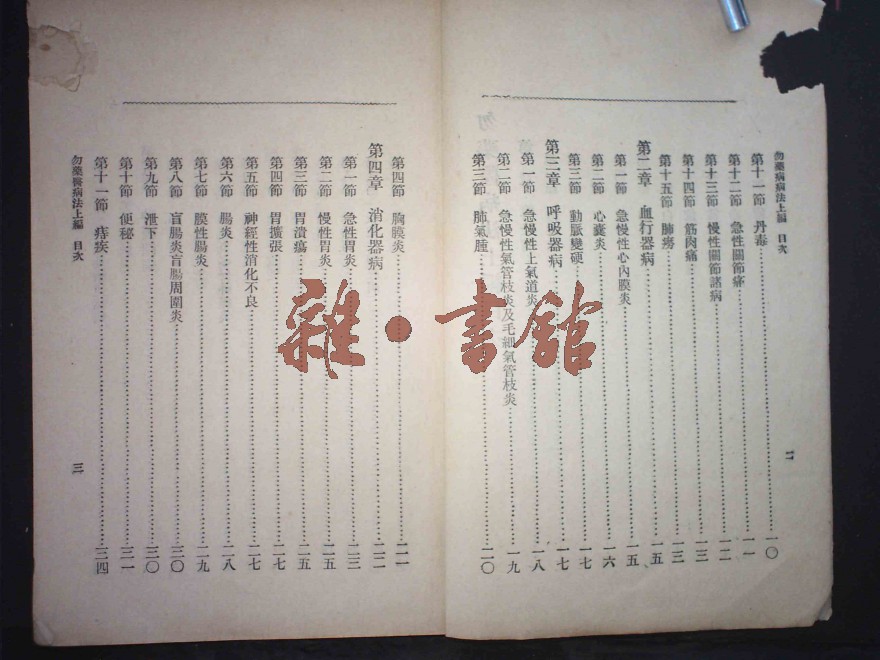 勿藥病病法上編 目次
二
第十一節 丹毒 一〇
第十二節 急性關節痛 一一
第十三節 慢性關節諸病 一二
第十四節 筋肉痛 一三
第十五節 肺癆 一三
第二章 血行器病 一五
第一節 急慢性心內膜炎 一五
第二節 心囊炎 一六
第三節 動脈變硬 一七
第三章 呼吸器病 一七
第一節 急慢性上氣道炎 一八
第二節 急慢性氣管枝炎及毛細氣管枝炎 一九
第三節 肺氣腫 二〇
第四節 胸膜炎 二一
第四章 消化器病 二二
第一節 急性胃炎 二三
第二節 慢性胃炎 二五
第三節 胃潰瘍 二五
第四節 胃擴張 二七
第五節 神經性消化不良 二七
第六節 腸炎 二八
第七節 膜性腸炎 二九
第八節 盲腸炎盲腸周圍炎 三〇
第九節 泄下 三〇
第十節 便秘 三一
第十一節 痔疾 三四
勿藥醫病法上編 目次
三
雜·書館